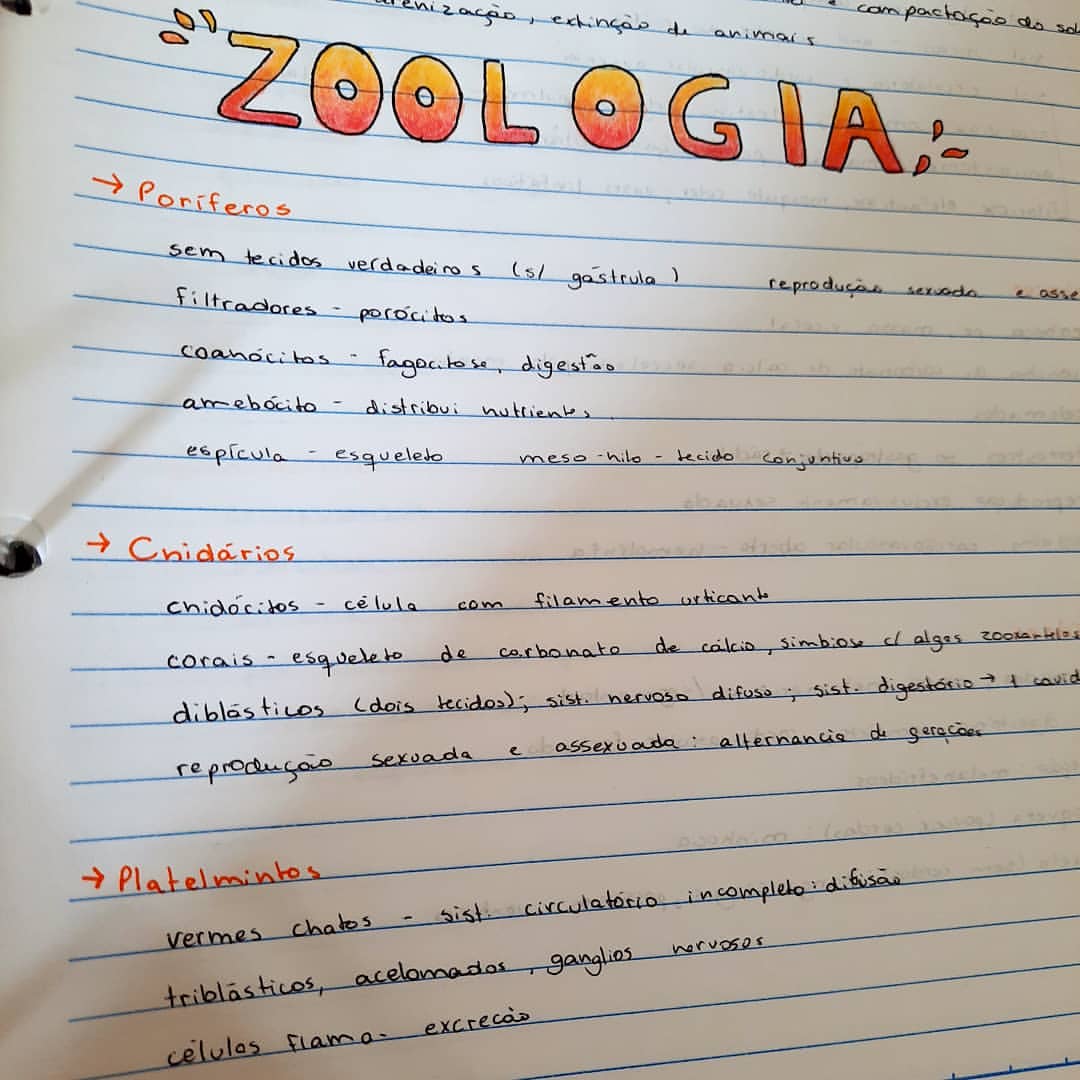 arenização, extinção de animais
e compactação do sol
ZOOLOGIA
→ Poríferos
sem tecidos verdadeiros (s/ gástrula) reprodução sexuada e asse
filtradores - porócitos
coanócitos - fagocitose, digestão
amebócito - distribui nutrientes
espícula - esqueleto meso-hilo - tecido conjuntivo
→ Cnidários
cnidócitos - célula com filamento urticante
corais - esqueleto de carbonato de cálcio, simbiose c/ algas zooxantelas
diblásticos (dois tecidos); sist. nervoso difuso; sist. digestório → 1 cavid
reprodução sexuada e assexuada: alternancia de gerações
→ Platelmintos
vermes chatos - sist. circulatório incompleto: difusão
triblásticos, acelomados, ganglios nervosos
células flama - excrecão